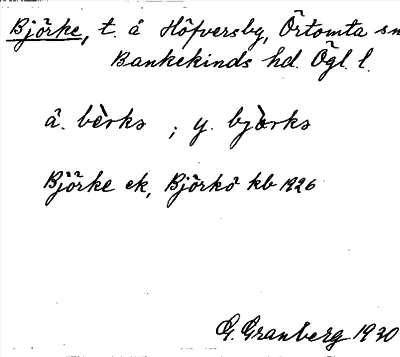 Björke, t. å Höfversby, Örtomta sn
Bankekinds hd. Ögl. l.
ä. bèrks ; y. bjærks
Björke ek, Björkö kb 1926
G. Granberg 1930